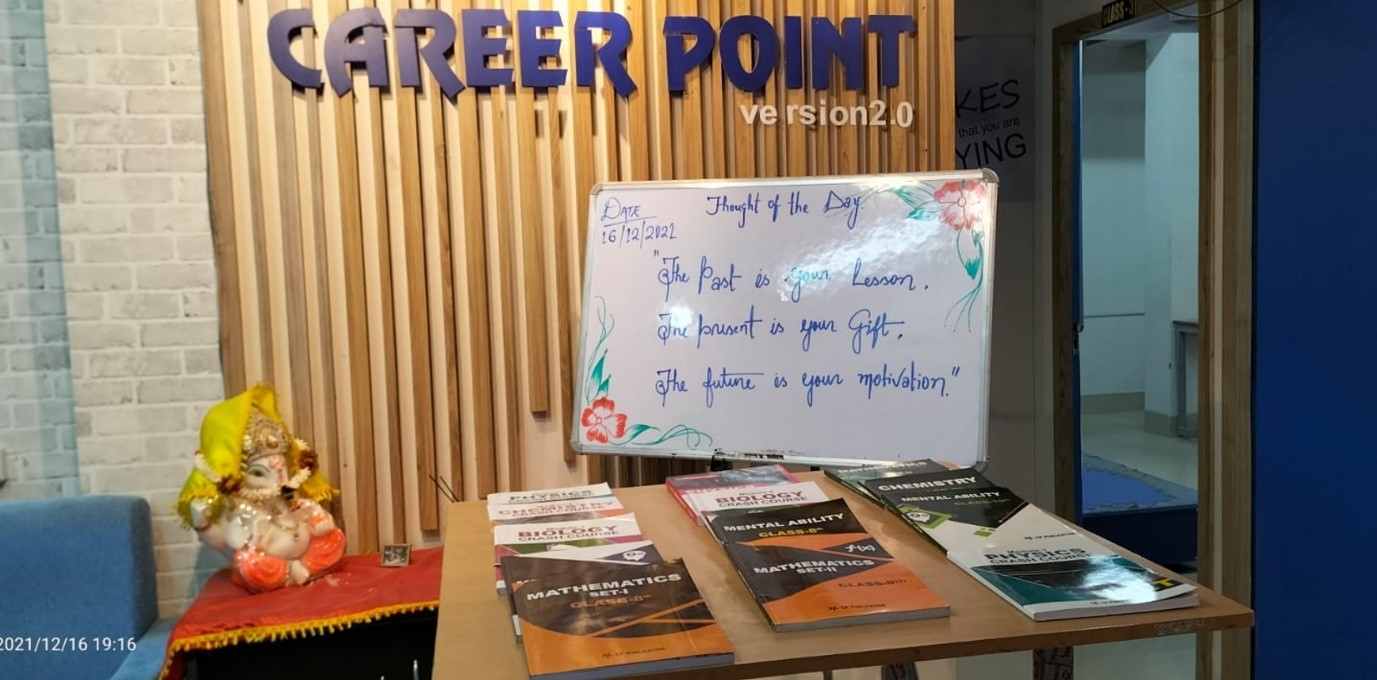 CAREER POINT
version2.0
CLASS-3
KES
that you are
YING
DATE
16/12/2021
Thought of the Day
"The Past is your Lesson.
The present is your Gift.
The future is your motivation."
PHYSICS
CHEMISTRY
CRASH COURSE
BIOLOGY
CRASH COURSE
MATHEMATICS
SET-I
CLASS-8th
BIOLOGY
CRASH COURSE
MENTAL ABILITY
CLASS-8th
f(x)
MATHEMATICS
SET-II
MATHEMATICS
CHEMISTRY
MENTAL ABILITY
PHYSICS
CRASH COURSE
2021/12/16 19:16